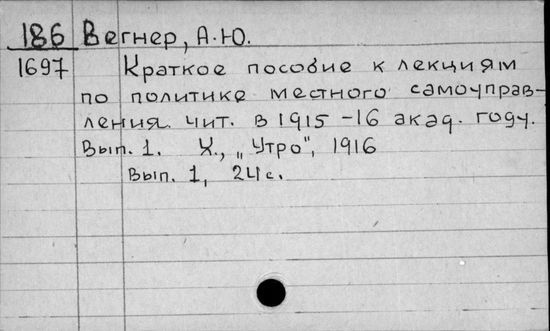 186 Вегнер, А.Ю.
1697 Краткое пособие к лекциям
по политике местного самоуправ-
ления. чит. в 1915-16 акад. году.
Вып. 1. Х., „Утро", 1916
Вып. 1, 24 с.